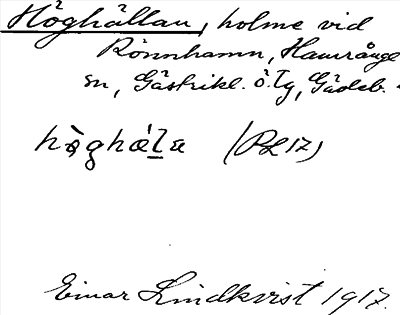 Höghällan, holme vid
Rönnhamn, Hamrånge
sn, Gästrikl. ö. Tg, Gävleb.
hὸghæ̀l̠a (PL 17)
Einar Lindkvist 1917.